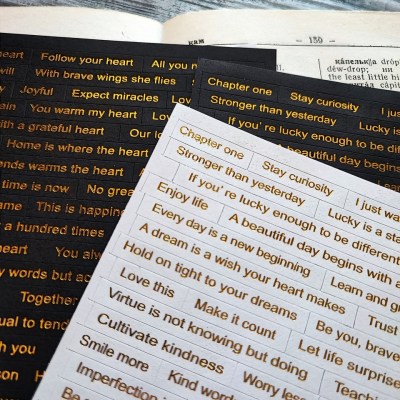 кам
— 150 —
кáпелька
the least little bi
heart Follow your heart All you n
will With brave wings she flies
Joyful Expect miracles Lov
ain You warm my heart
with a grateful heart Our lo
Home is where the heart
ends warms the heart A
time is now No grea
ame This is happine
a hundred times
heart You alw
y words but ac
Together
ual to tend
h you
son H
Chapter one Stay curiosity I
Stronger than yesterday Lucky is
If you' re lucky enough to be differ
A beautiful day begins
Chapter one Stay curiosity I just wan
Stronger than yesterday Lucky is a sta
If you' re lucky enough to be different
Enjoy life A beautiful day begins with a
Every day is a new beginning Learn and g
A dream is a wish your heart makes Trust
Hold on tight to your dreams Be you, brave
Love this Make it count Let life surprise
Virtue is not knowing but doing Teachin
Cultivate kindness Worry less
Smile more Kind word
Imperfection i
Be